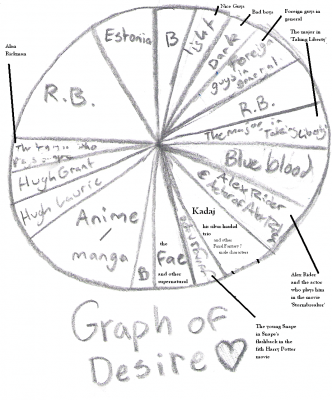 Nice Guys
Bad boys
Foreign guys in
general
The mayor in
'Taking Liberty'
Alan
Rickman
Estonia
B
light
Dark
Foreign
guys in
general.
R.B.
R.B.
The major in Taking Liberty
Blue blood
Alex Rider
& Actor of Alex Rider
Hugh Grant
Hugh Laurie
Anime
/
manga
B
the
Fae
and other
supernatural
Kadaj
his silver haired
trio
and other
Final Fantasy 7
male characters
Alex Rider
and the actor
who plays him
in the movie
'Stormbreaker'
The young Snape
in Snape's
flashback in the
5th Harry Potter
movie
Graph of
Desire